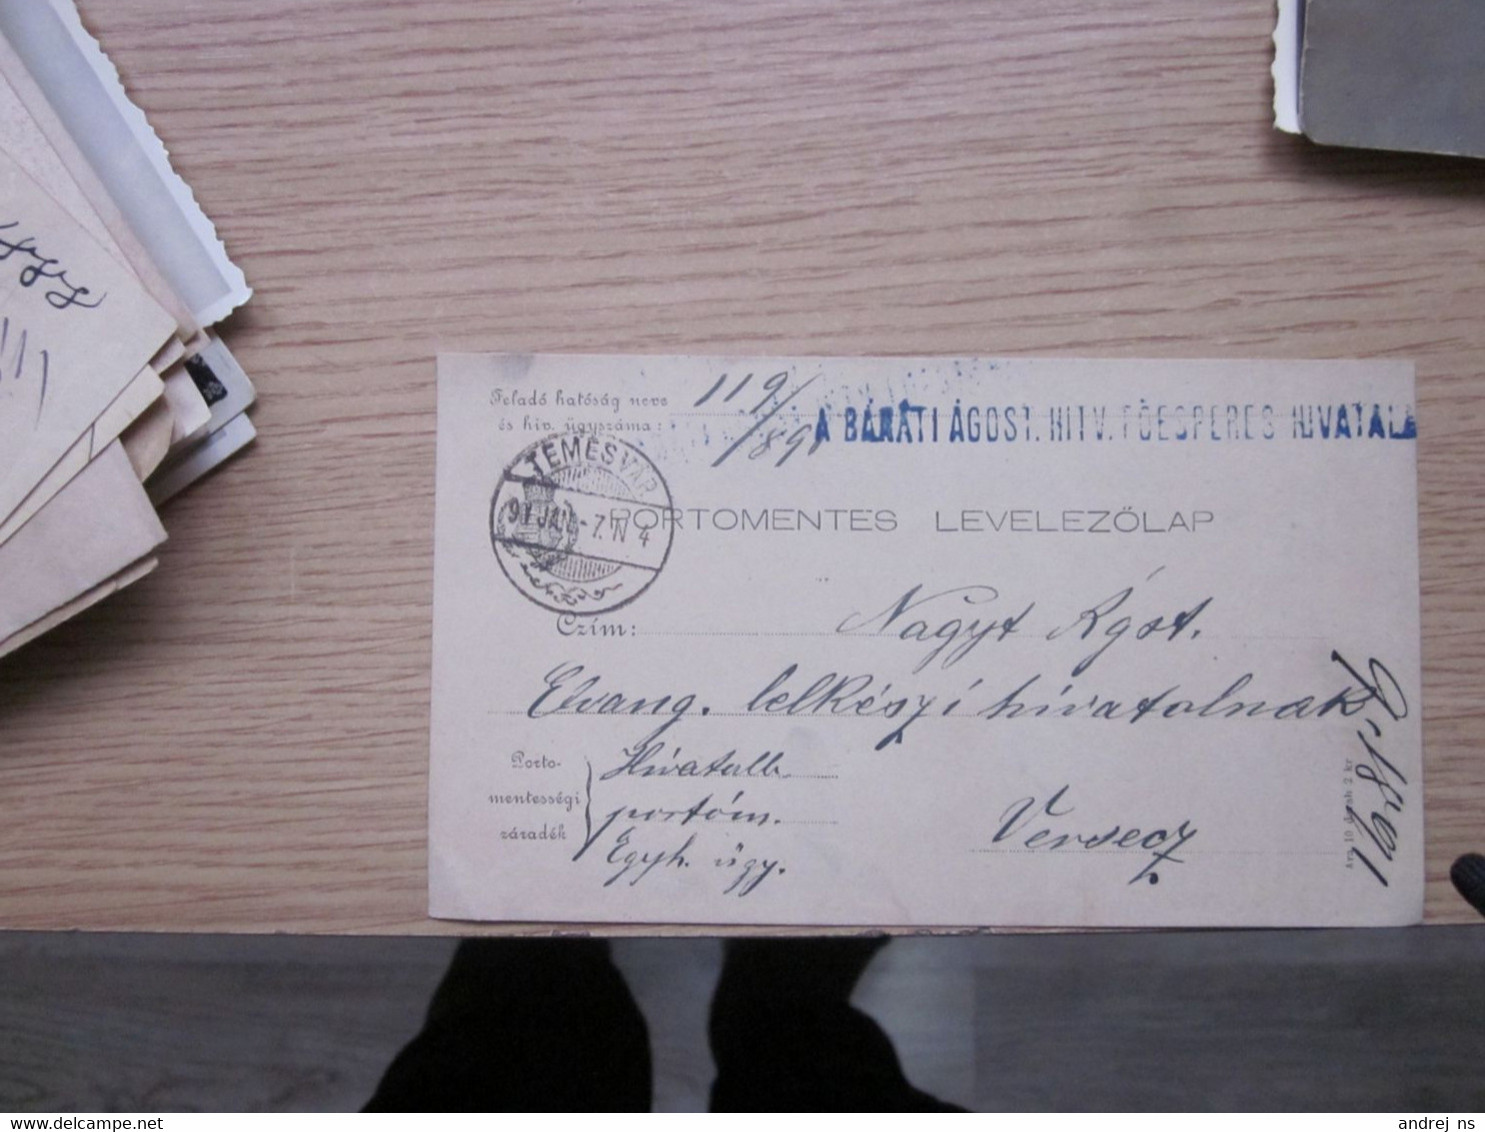 1888
Feladó hatóság neve
és hiv. ügyszáma:
119/
/89
A BÁRÁTI ÁGOST. HITV. FŐESPERES HIVATALA
TEMESVÁR
91 JAN -7. N 4
PORTOMENTES LEVELEZŐLAP
Czím: Nagyt Ágst.
Evang. lelkészi hivatalnak
Porto-
mentességi
záradék
Hivatalb.
portóm.
Egyh. ügy.
Versecz
Ára 10 darab 2 kr
andrej ns
www.delcampe.net